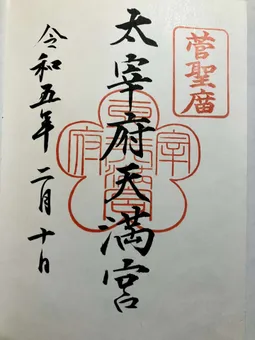 菅聖廟
太宰府天満宮
令和五年 二月十日